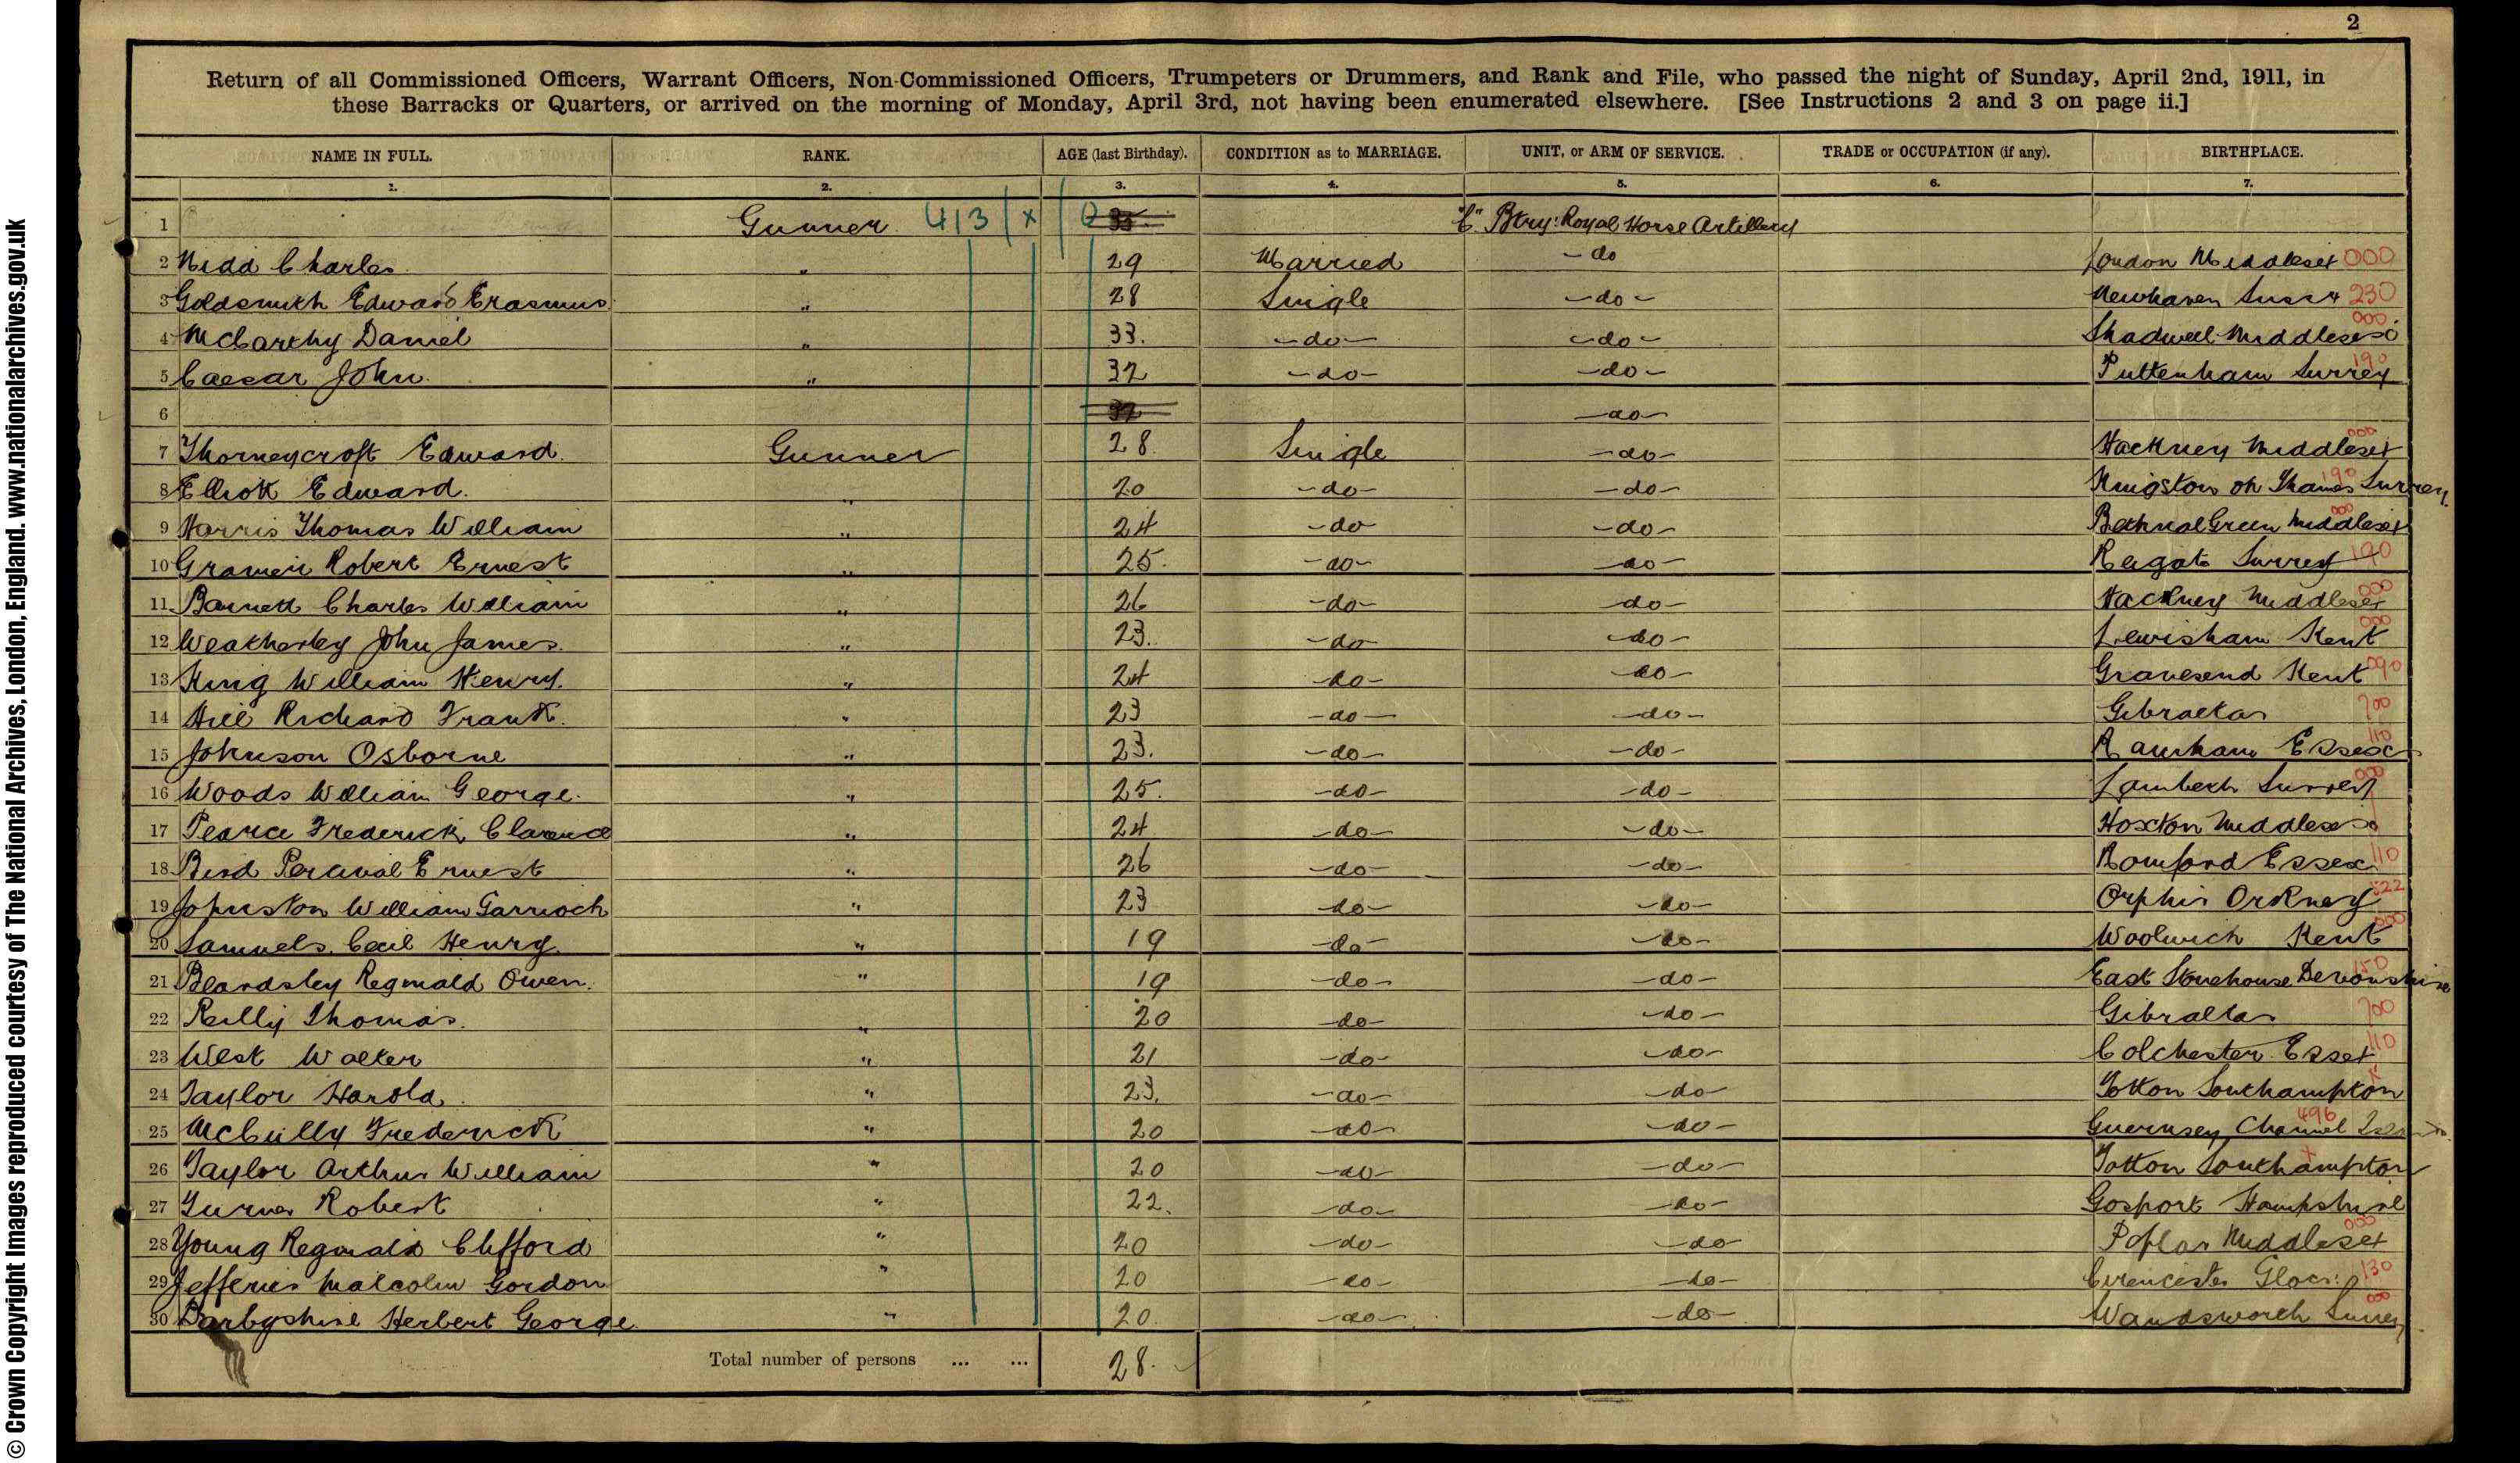 2
Return of all Commissioned Officers, Warrant Officers, Non-Commissioned Officers, Trumpeters or Drummers, and Rank and File, who passed the night of Sunday, April 2nd, 1911, in
these Barracks or Quarters, or arrived on the morning of Monday, April 3rd, not having been enumerated elsewhere. [See Instructions 2 and 3 on page ii.]
NAME IN FULL. RANK. AGE (last Birthday). CONDITION as to MARRIAGE. UNIT, or ARM OF SERVICE. TRADE or OCCUPATION (if any). BIRTHPLACE.
1. 2. 3. 4. 5. 6. 7.
1 Gunner 413 / x / 0 Btry: Royal Horse Artillery
2 Nidd Charles " 29 Married -do London Middlesex 000
3 Goldsmith Edward Erasmus " 28 Single -do- Newhaven Sussex 230
4 McCarthy Daniel " 33. -do- -do- Shadwell Middlesex 000
5 Caesar John " 32 -do- -do- Puttenham Surrey 190
6 32 -do-
7 Thorneycroft Edward. Gunner 28 Single -do- Hackney Middlesex 000
8 Elliott Edward. " 20 -do- -do- Kingston on Thames Surrey. 190
9 Harris Thomas William " 24 -do -do- Bethnal Green Middlesex 000
10 Robert Ernest " 25. -do- -do- Reigate Surrey 190
11 Barnett Charles William " 26 -do- -do- Hackney Middlesex 000
12 Weatherley John James. " 23. -do- -do- Lewisham Kent 000
13 King William Henry. " 24 -do- -do- Gravesend Kent 090
14 Hill Richard Frank. " 23 -do- -do- Gibraltar 700
15 Johnson Osborne " 23. -do- -do- Rainham Essex 110
16 Woods William George. " 25. -do- -do- Lambeth Surrey 000
17 Pearce Frederick Clarence " 24 -do- -do- Hoxton Middlesex
18 Bird Percival Ernest " 26 -do- -do- Romford Essex 110
19 Johnston William Garrioch " 23 -do- -do- Orphir Orkney 522
20 Samuels Cecil Henry " 19 -do- -do- Woolwich Kent 000
21 Beardsley Reginald Owen. " 19 -do- -do- East Stonehouse Devonshire 150
22 Reilly Thomas. " 20 -do- -do- Gibraltar 700
23 West Walter " 21 -do- -do- Colchester Essex 110
24 Taylor Harold " 23. -do- -do- Totton Southampton x
25 McCully Frederick " 20 -do- -do- Guernsey Channel 496
26 Taylor Arthur William " 20 -do- -do- Totton Southampton x
27 Turner Robert " 22. -do- -do- Gosport Hampshire
28 Young Reginald Clifford " 20 -do- -do Poplar Middlesex 000
29 Jefferies Malcolm Gordon " 20 -do- -do- Cirencester Glocs: 130
30 Darbyshire Herbert George " 20. -do- -do- Wandsworth Surrey 000
Total number of persons ... ... 28.
© Crown Copyright Images reproduced courtesy of The National Archives, London, England. www.nationalarchives.gov.uk